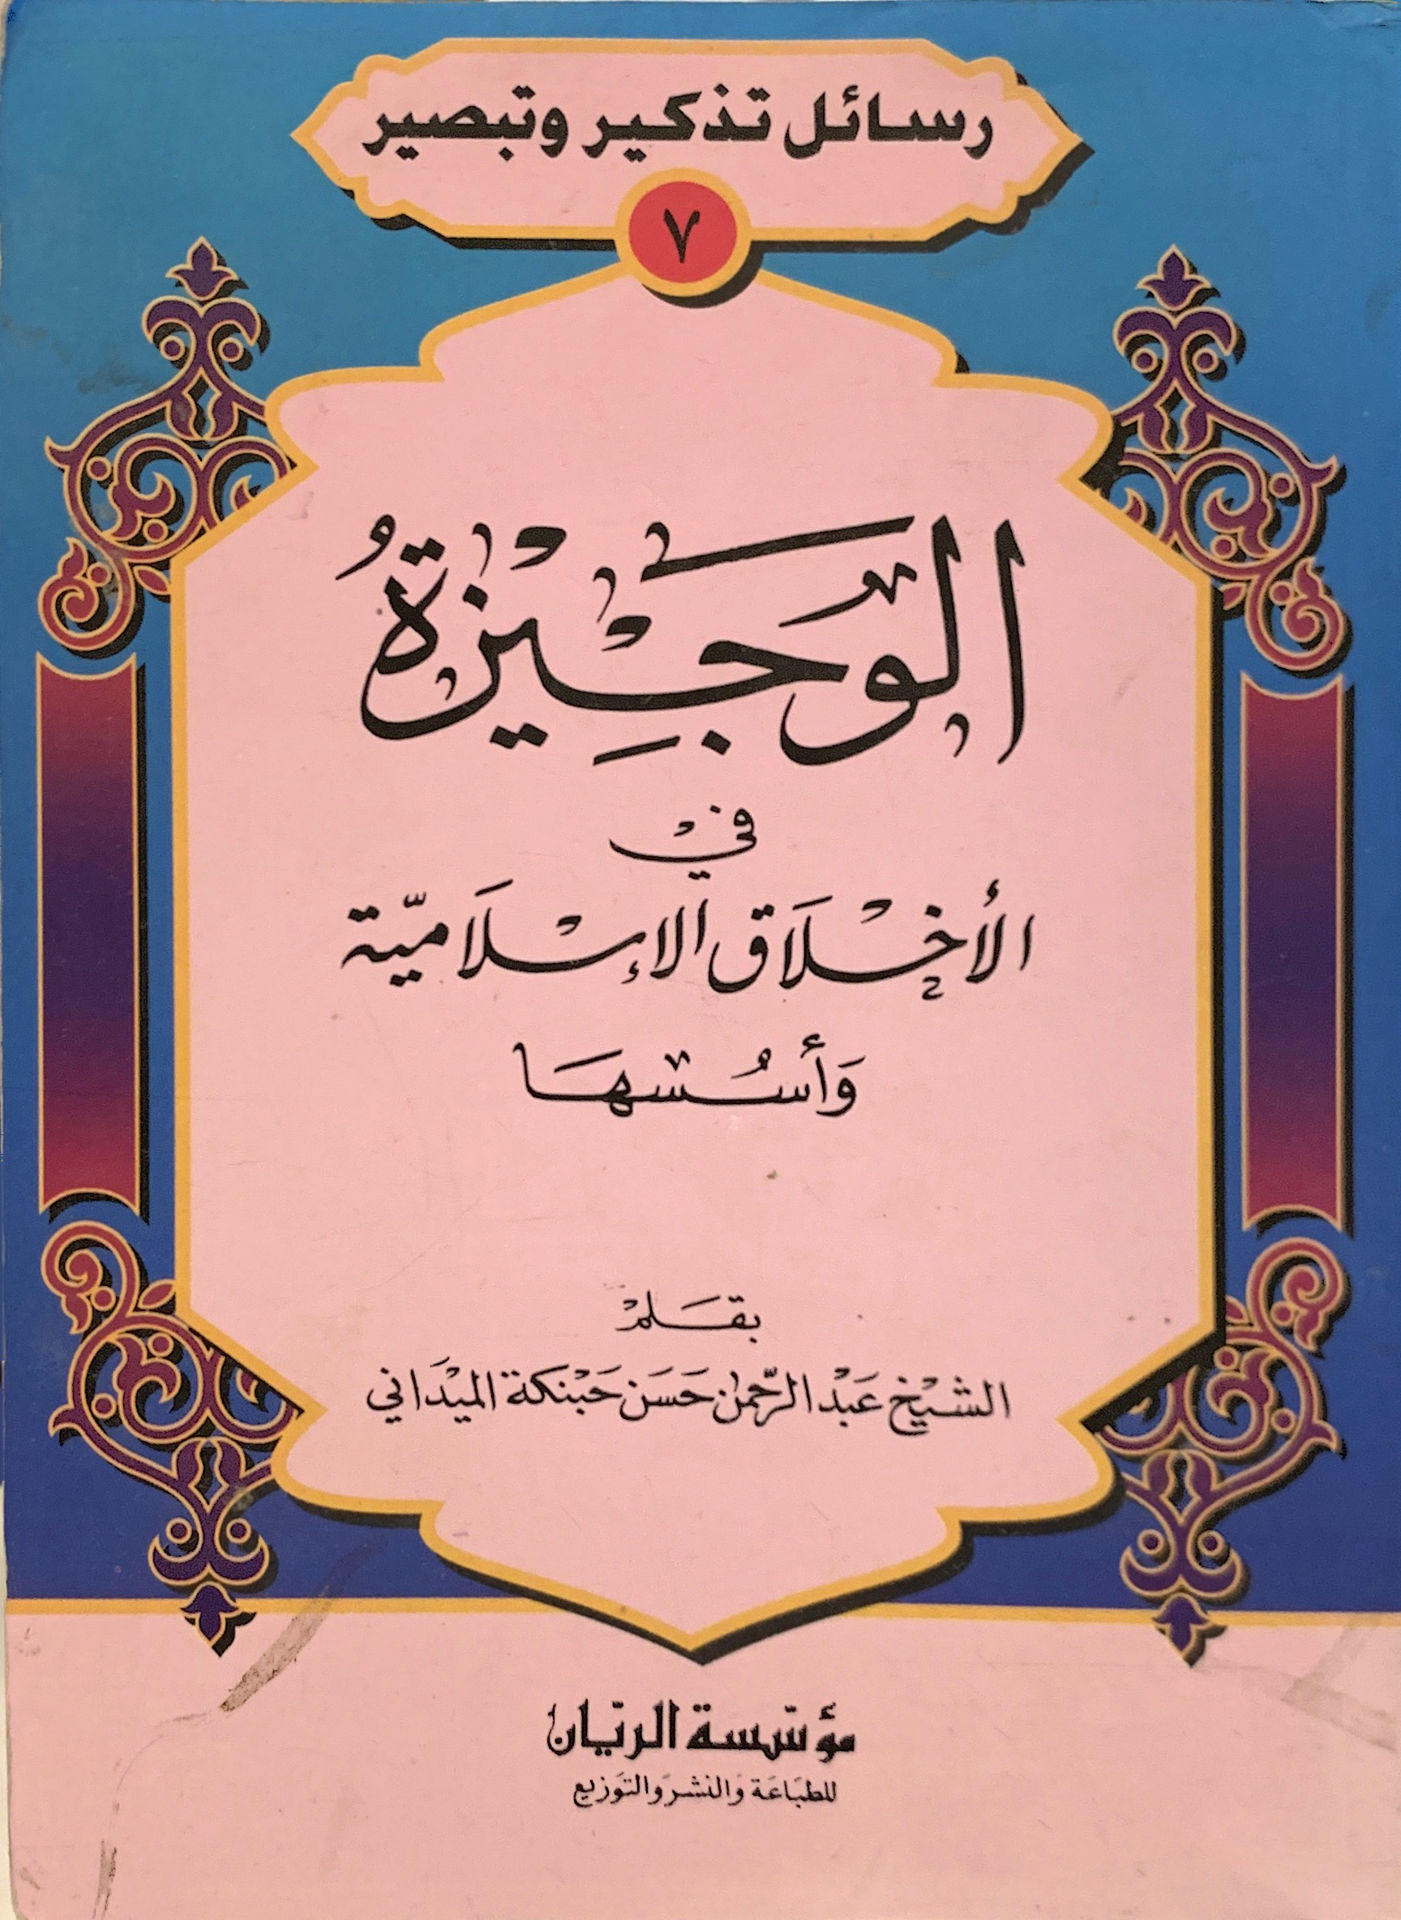 رسائل تذكير وتبصير
٧
الوَجِيْزَةُ
في
الأخْلَاق الإسْلَاميّة
وَأسُسهَا
بقَلَمْ
الشيْخ عَبْد الرَّحمٰن حَسَن حَبْنكة الميْدَاني
مؤسّسة الريّان
للطبَاعَة وَالنشر وَالتوَزيع